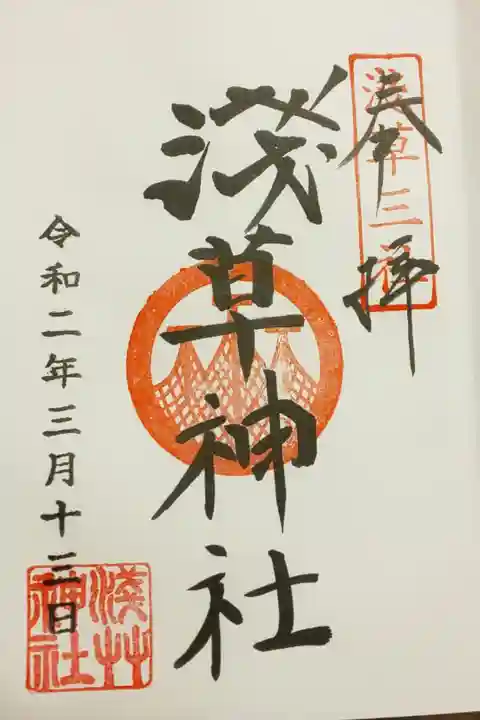 奉拝
浅草三社
浅草神社
令和二年三月十三日
浅草
神社